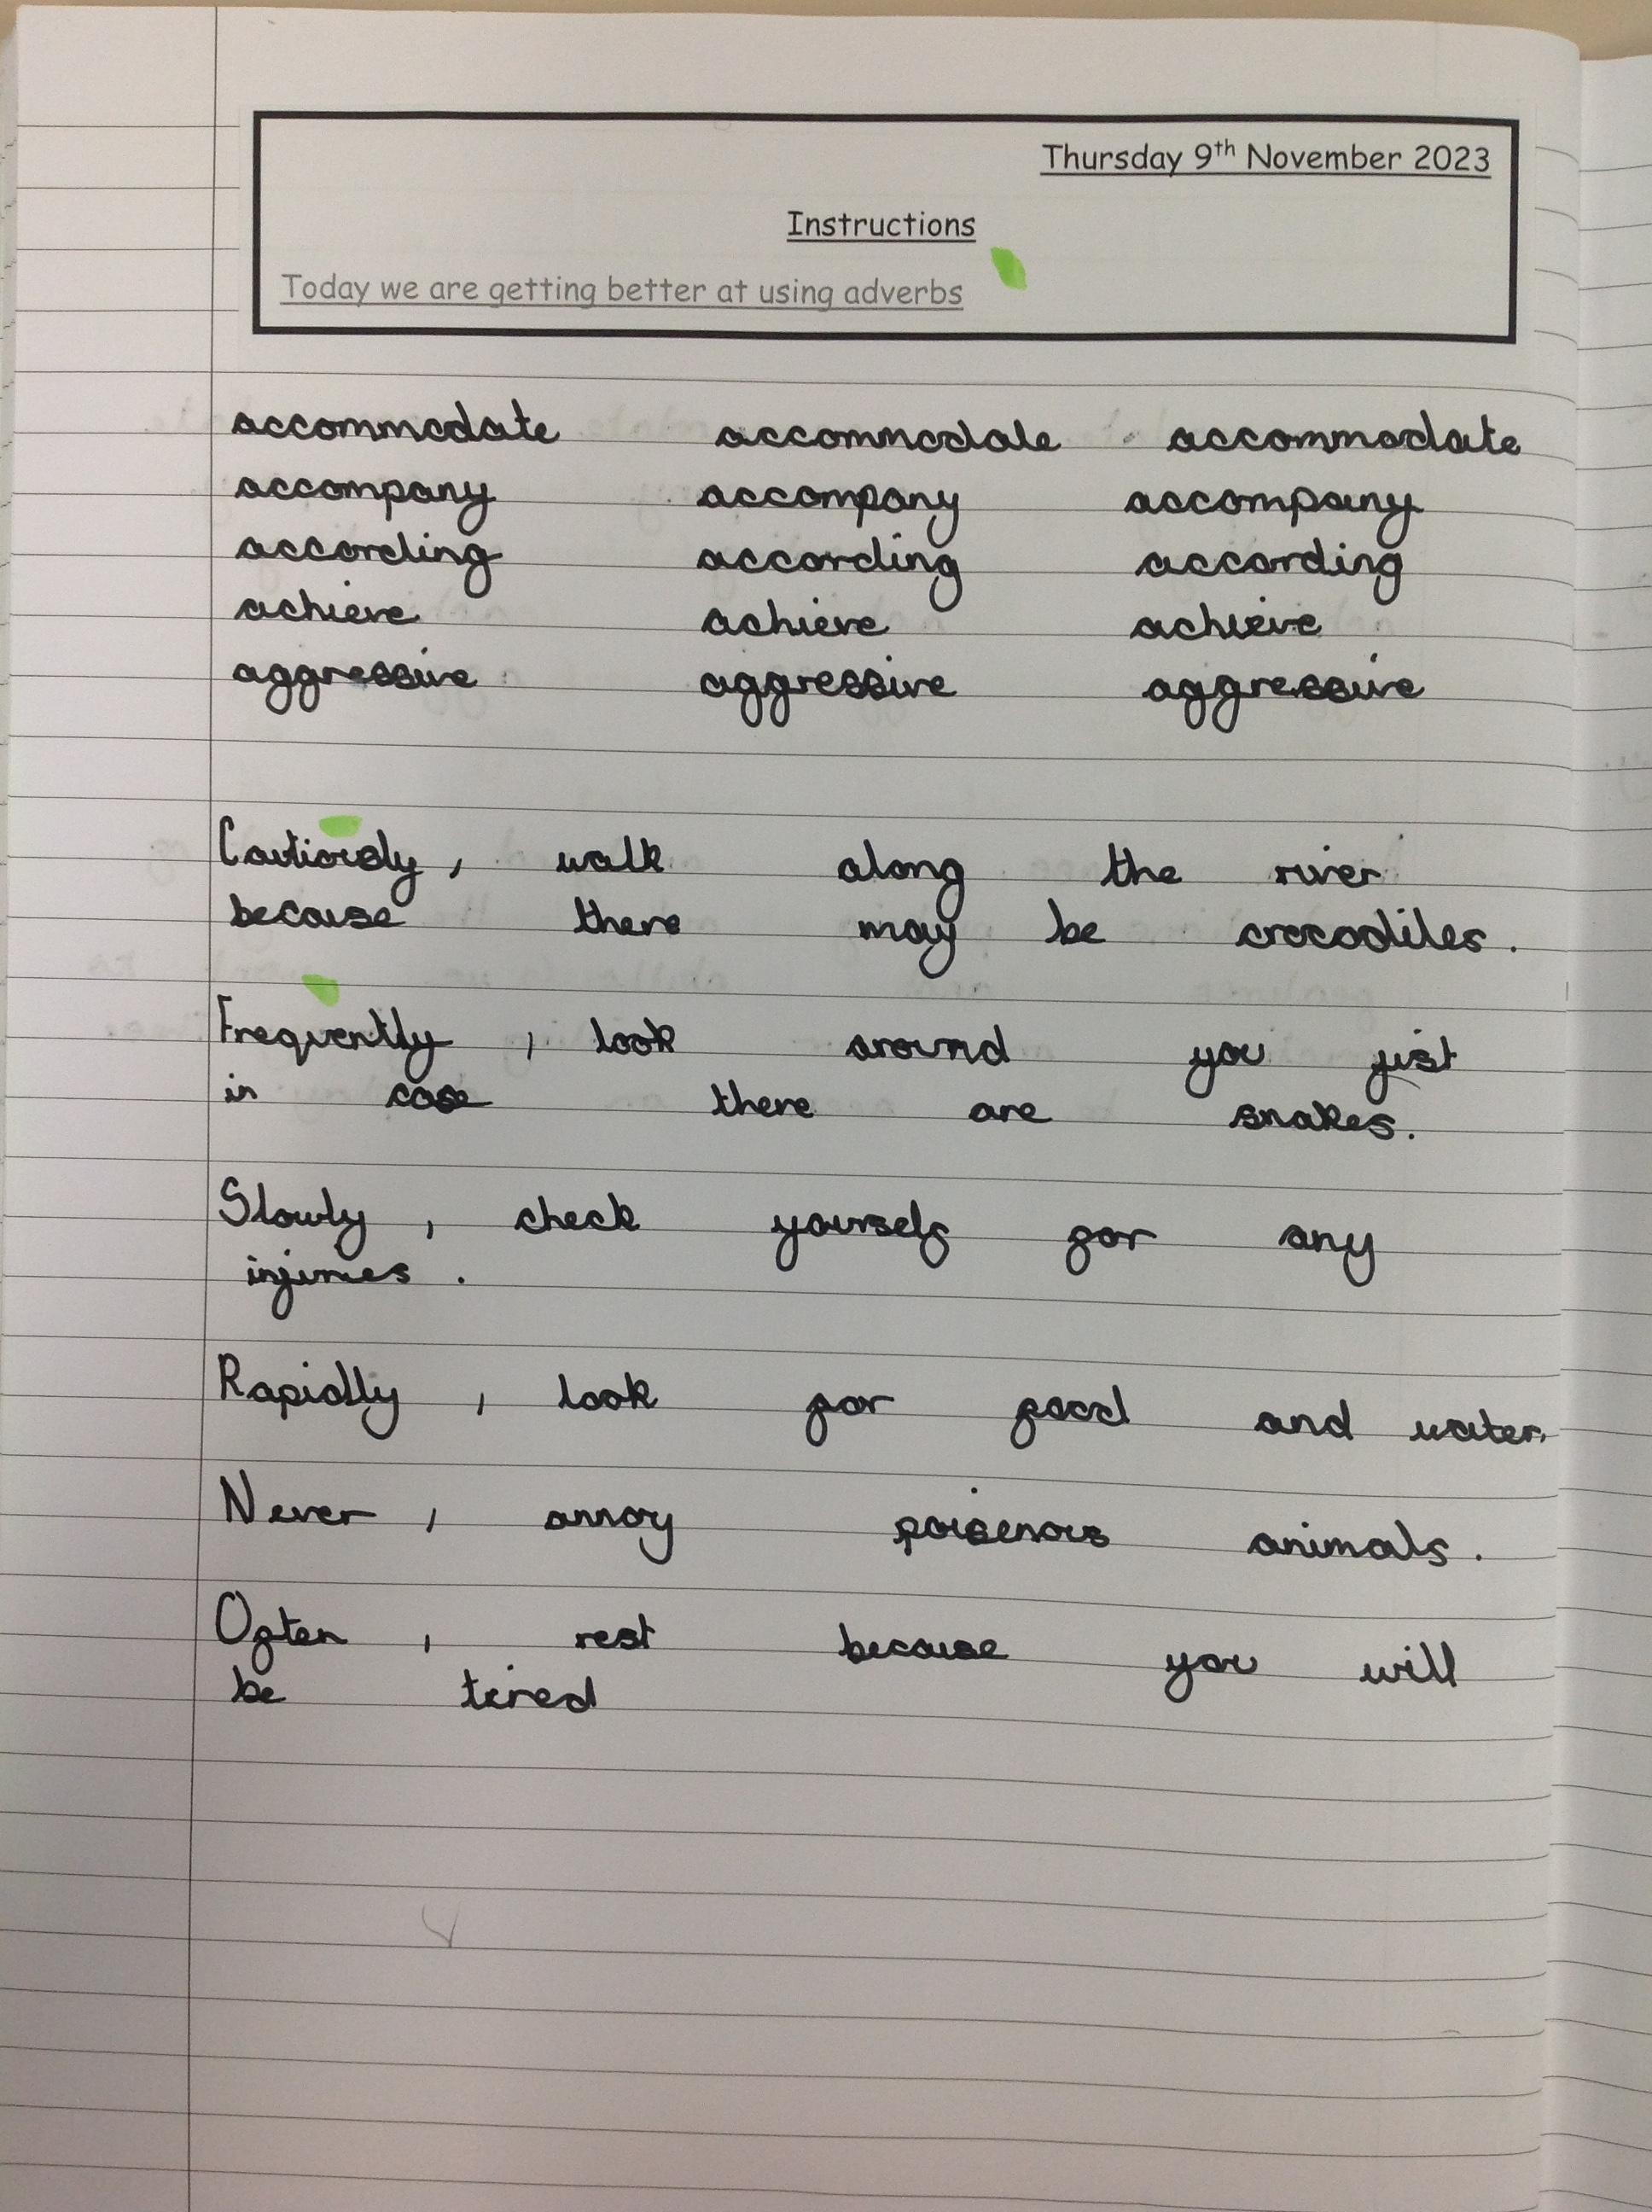 Thursday 9th November 2023
Instructions
Today we are getting better at using adverbs
accommodate accommodate accommodate
accompany accompany accompany
according according according
achieve achieve achieve
aggressive aggressive aggressive
Cautiously, walk along the river
because there may be crocodiles.
Frequently, look around you just
in case there are snakes.
Slowly, check yourself for any
injuries.
Rapidly, look for food and water.
Never, annoy poisenous animals.
Often, rest because you will
be tired